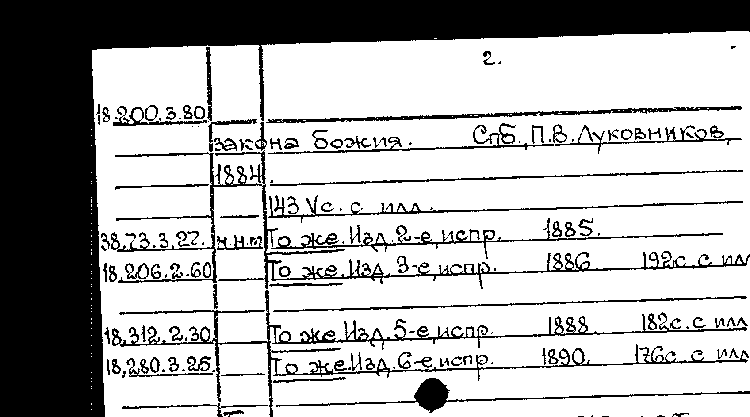 2.
18.200.3.80
закона божия. Спб., П.В. Луковников,
1884.
143, V с. с илл.
38.73.3.27. ч.н.т То же. Изд. 2-е, испр. 1885.
18.206.2.60 То же. Изд. 3-е, испр. 1886. 192с. с илл
18.312.2.30 То же. Изд. 5-е, испр. 1888. 182с. с илл
18.280.3.25 То же. Изд. 6-е, испр. 1890. 176с. с илл